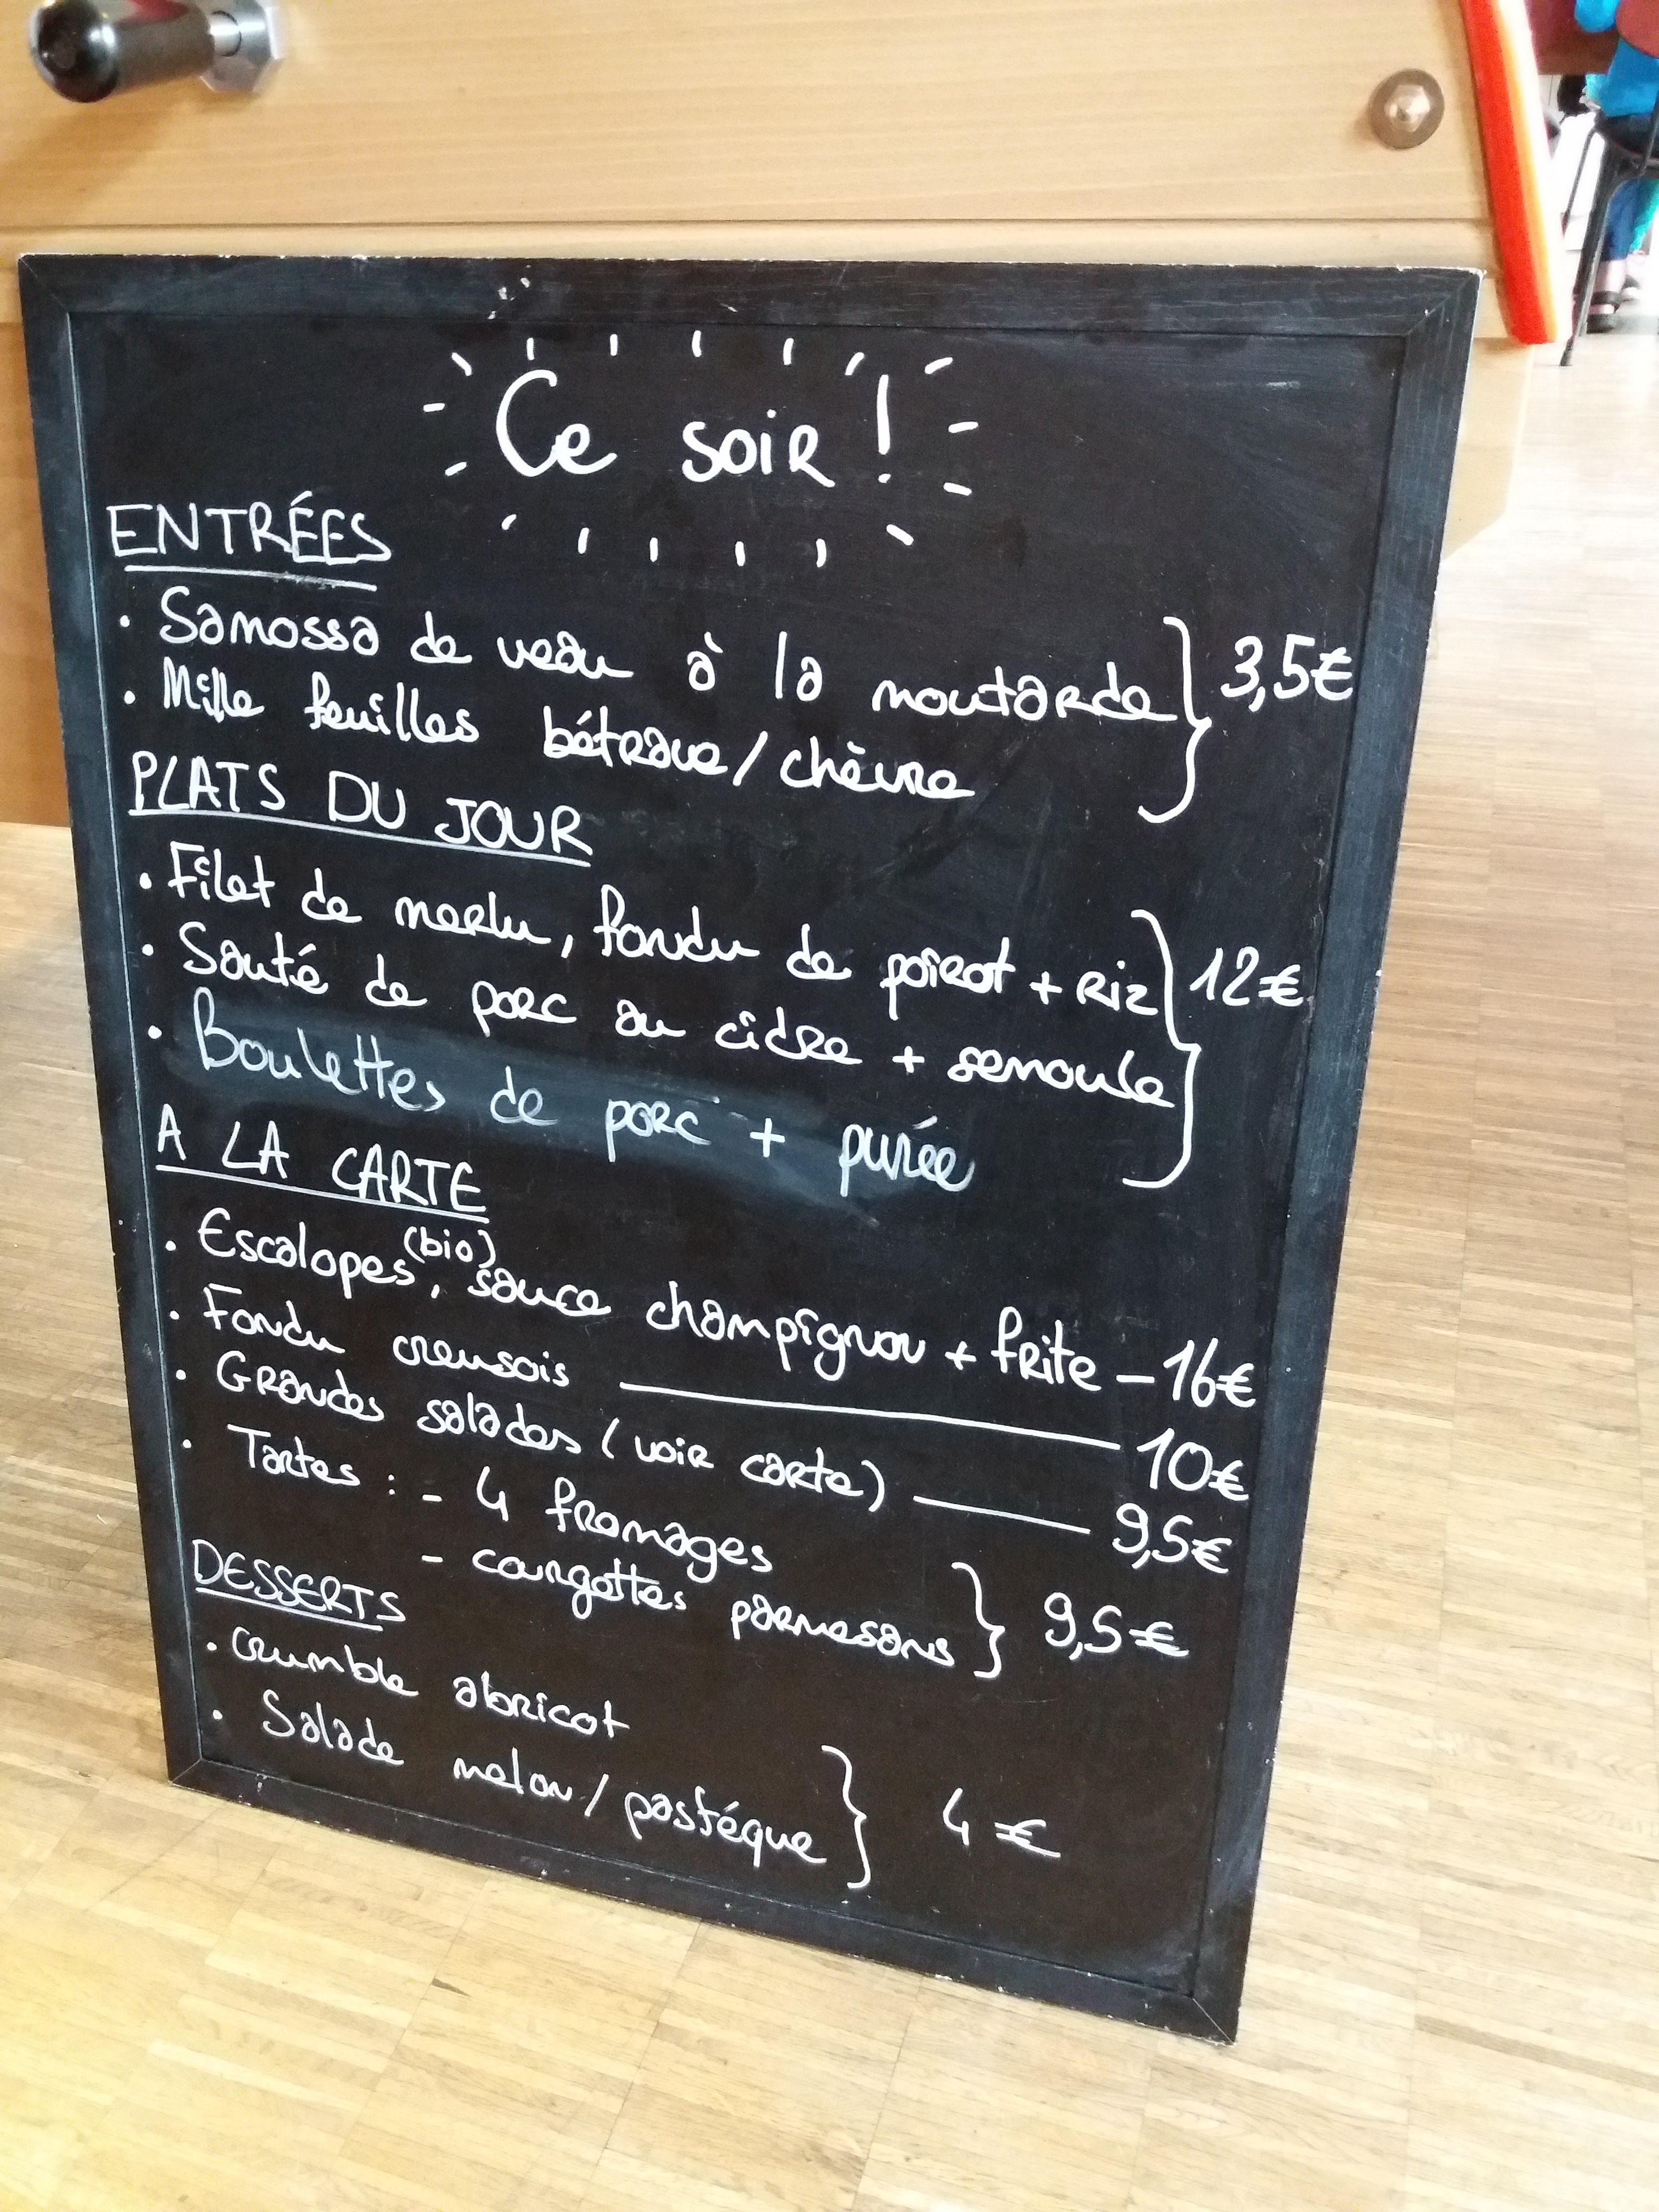 Ce soir !
ENTRÉES
• Samossa de veau à la moutarde
• Mille feuilles bétrave / chèvre
3,5€
PLATS DU JOUR
• Filet de merlu, fondu de poirot + riz
• Sauté de porc au cidre + semoule
• Boulettes de porc + purée
12€
A LA CARTE
• Escalopes (bio), sauce champignon + frite — 16€
• Fondu creusois — 10€
• Grandes salades (voir carte) — 9,5€
• Tartes : - 4 fromages
- courgettes parmesans
9,5€
DESSERTS
• crumble abricot
• Salade melon / pastéque
4€